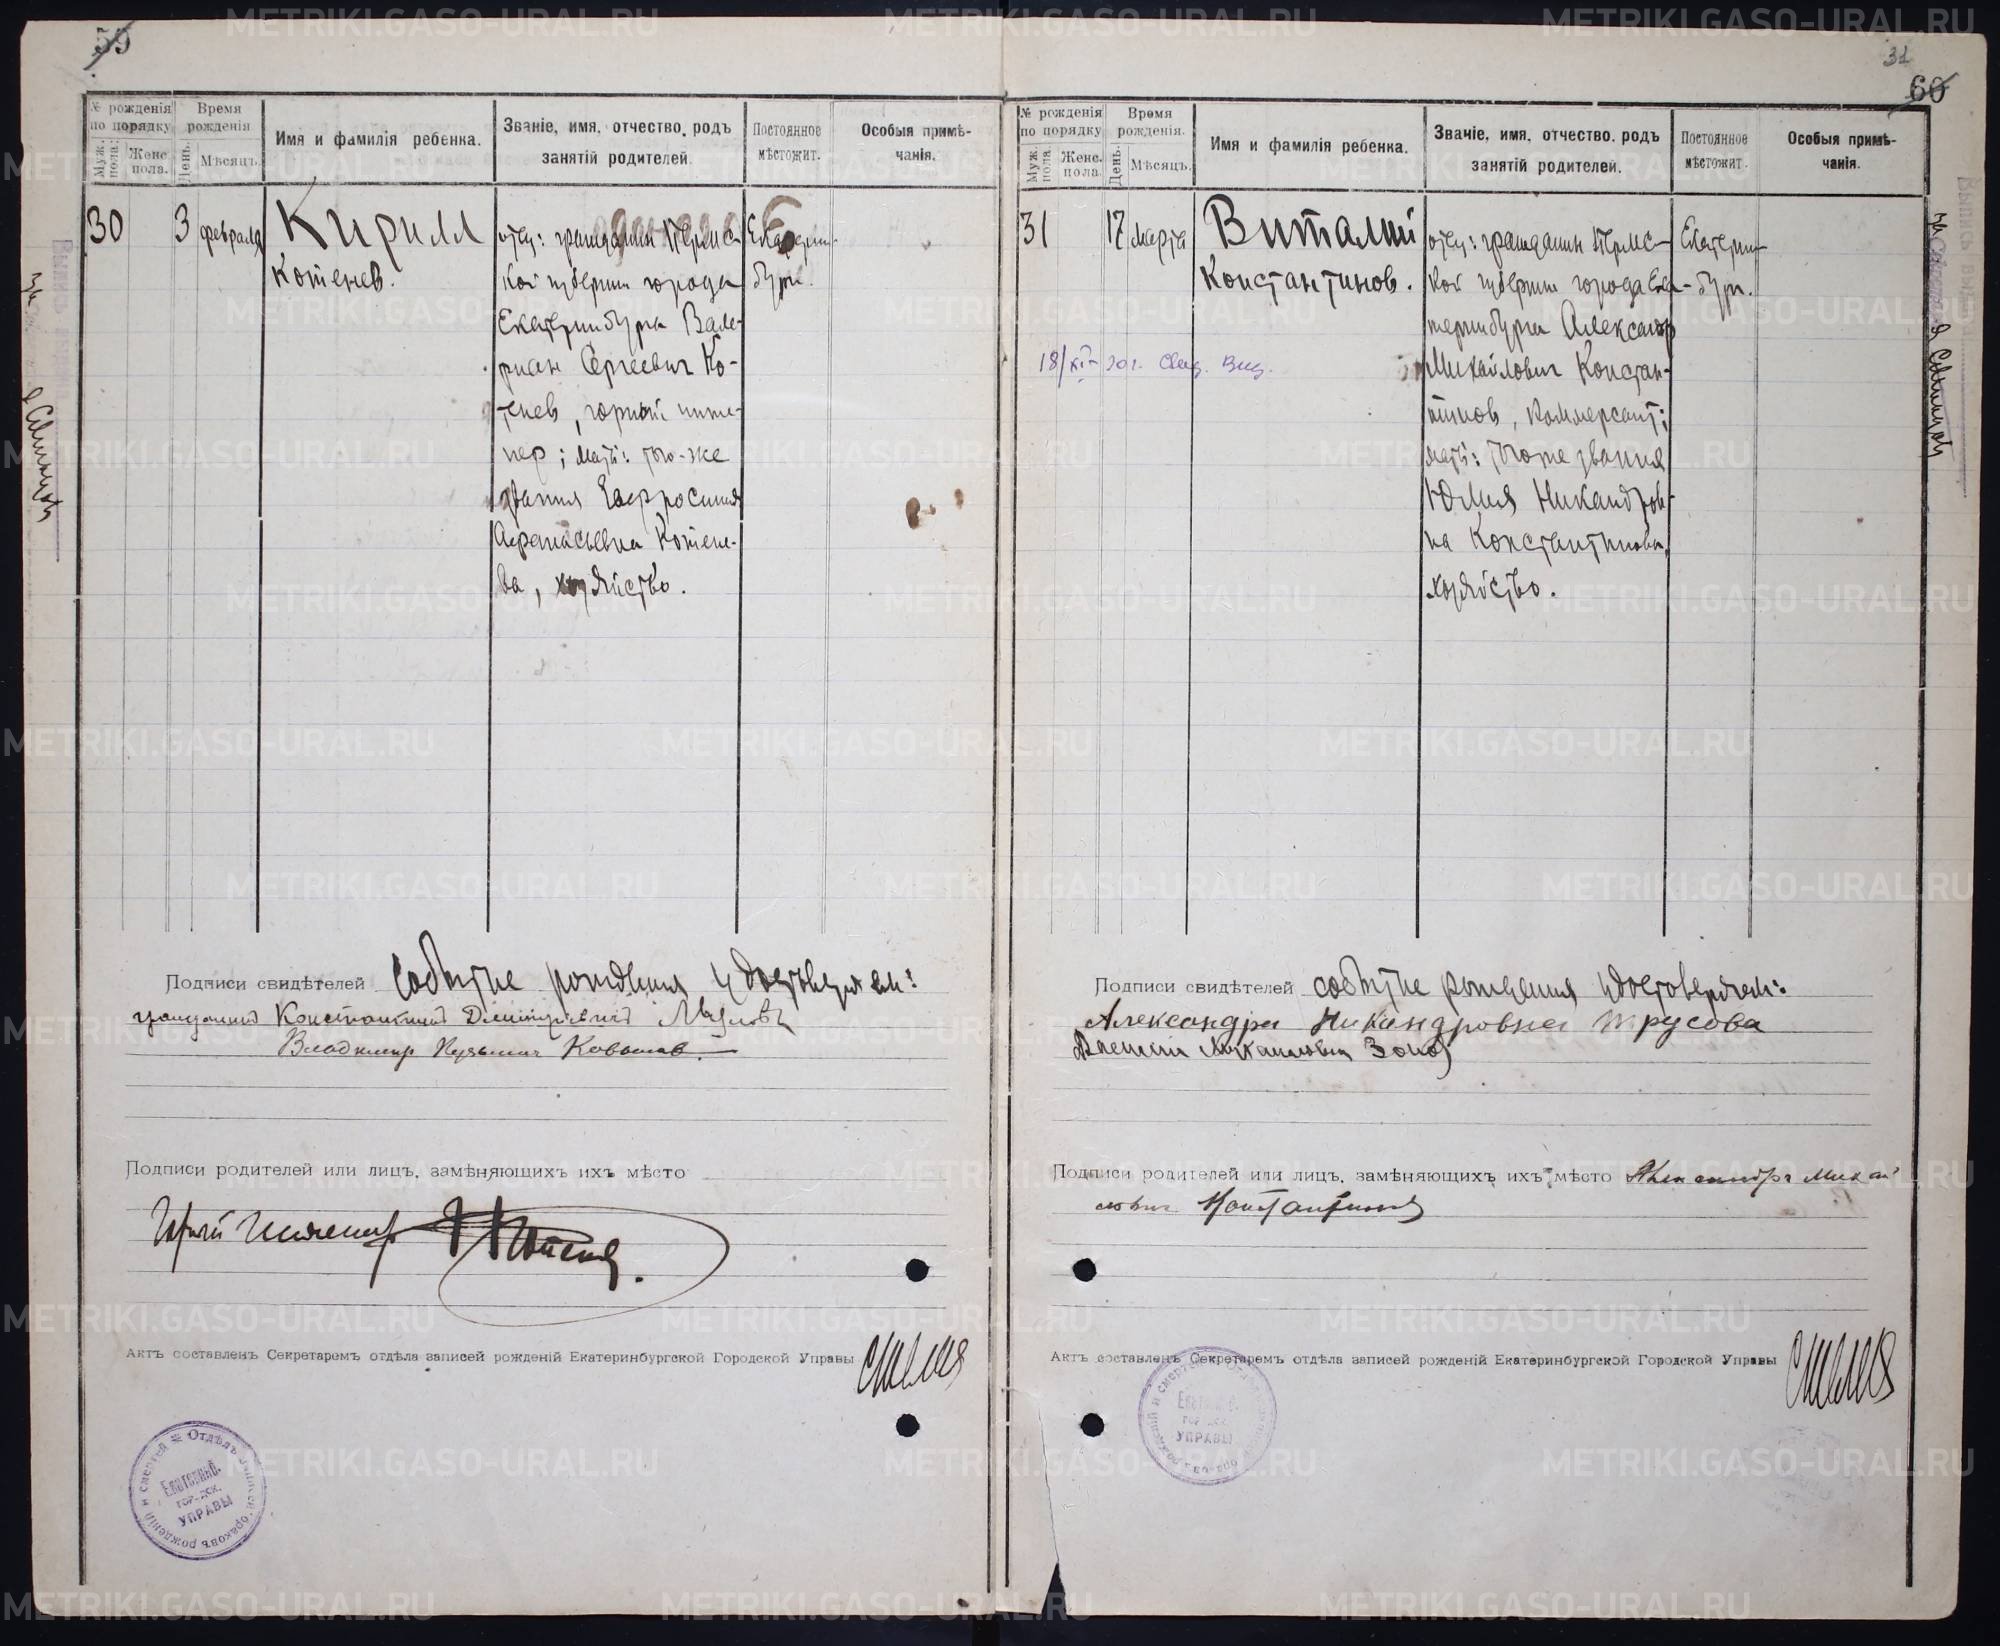 59
№ рожденія по порядку
Муж. пола.
Женс пола.
Время рожденія
День.
Мѣсяцъ.
Имя и фамилія ребенка.
Званіе, имя, отчество, родъ
занятій родителей.
Постоянное
мѣстожит.
Особыя примѣ-
чанія.
30
3
февраля
Кирилл
Котенев.
отец: гражданин Пермс-
кой губернии города
Екатеринбурга Вале-
риан Сергеевич Ко-
тенев, горный инже-
нер; мать: того-же
звания Евфросиния
Афанасьевна Котене-
ва, хозяйство.
Екатерин-
бург.
Подписи свидѣтелей Событие рождения удостоверяем:
гражданин Константин Дмитриевич
Владимир Кузьмич
Подписи родителей или лицъ, замѣняющихъ ихъ мѣсто
Горный Инженер Котенев.
Актъ составленъ Секретаремъ отдѣла записей рожденій Екатеринбургской Городской Управы
Отдѣлъ записи браковъ рожденій и смертей
Екатеринб.
ГОРОДСК.
УПРАВЫ
31
60
№ рожденія
по порядку
Муж. пола.
Женс. пола.
Время
рожденія.
День.
Мѣсяцъ.
Имя и фамилія ребенка.
Званіе, имя, отчество, родъ
занятій родителей.
Постоянное
мѣстожит.
Особыя примѣ-
чанія.
31
17
марта
Виталий
Константинов.
18/XI-30г.
отец: гражданин Пермс-
кой губернии города Ека-
теринбурга Александр
Михайлович Констан-
тинов, коммерсант;
мать: того же звания
Юлия Никандров-
на Константинова,
хозяйство.
Екатерин-
бург.
Подписи свидѣтелей событие рождения удостоверяем:
Александра Никандровна Трусова
Подписи родителей или лицъ, замѣняющихъ ихъ мѣсто Александръ Михай
лович Константинов
Актъ составленъ Секретаремъ отдѣла записей рожденій Екатеринбургской Городской Управы
Екатеринб.
ГОРОДСК.
УПРАВЫ
METRIKI.GASO-URAL.RU